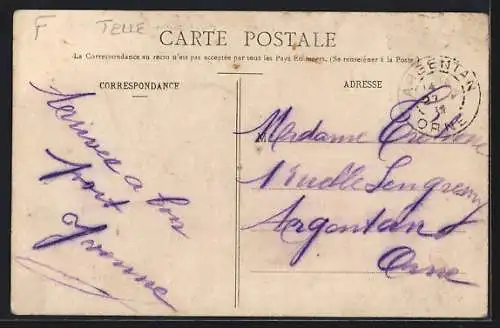 F TELLE
CARTE POSTALE
La Correspondance au recto n'est pas acceptée par tous les Pays Etrangers. (Se renseigner à la Poste)
CORRESPONDANCE
ADRESSE
ARGENTAN
ORNE
Arrivée a bon
port
Yvonne
Madame
1 Ruelle
Argentan
Orne